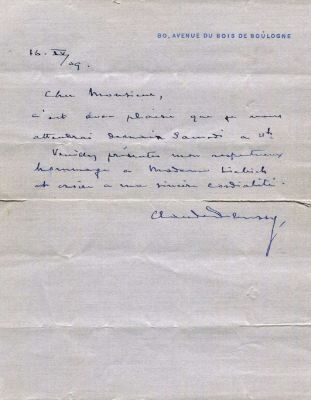 80, AVENUE DU BOIS DE BOULOGNE
Cher Monsieur,
c'est avec plaisir que je vous
attendrai demain Samedi à
Veuillez présenter mon respectueux
hommage à Madame
et croire à ma sincère cordialité.
Claude Debussy